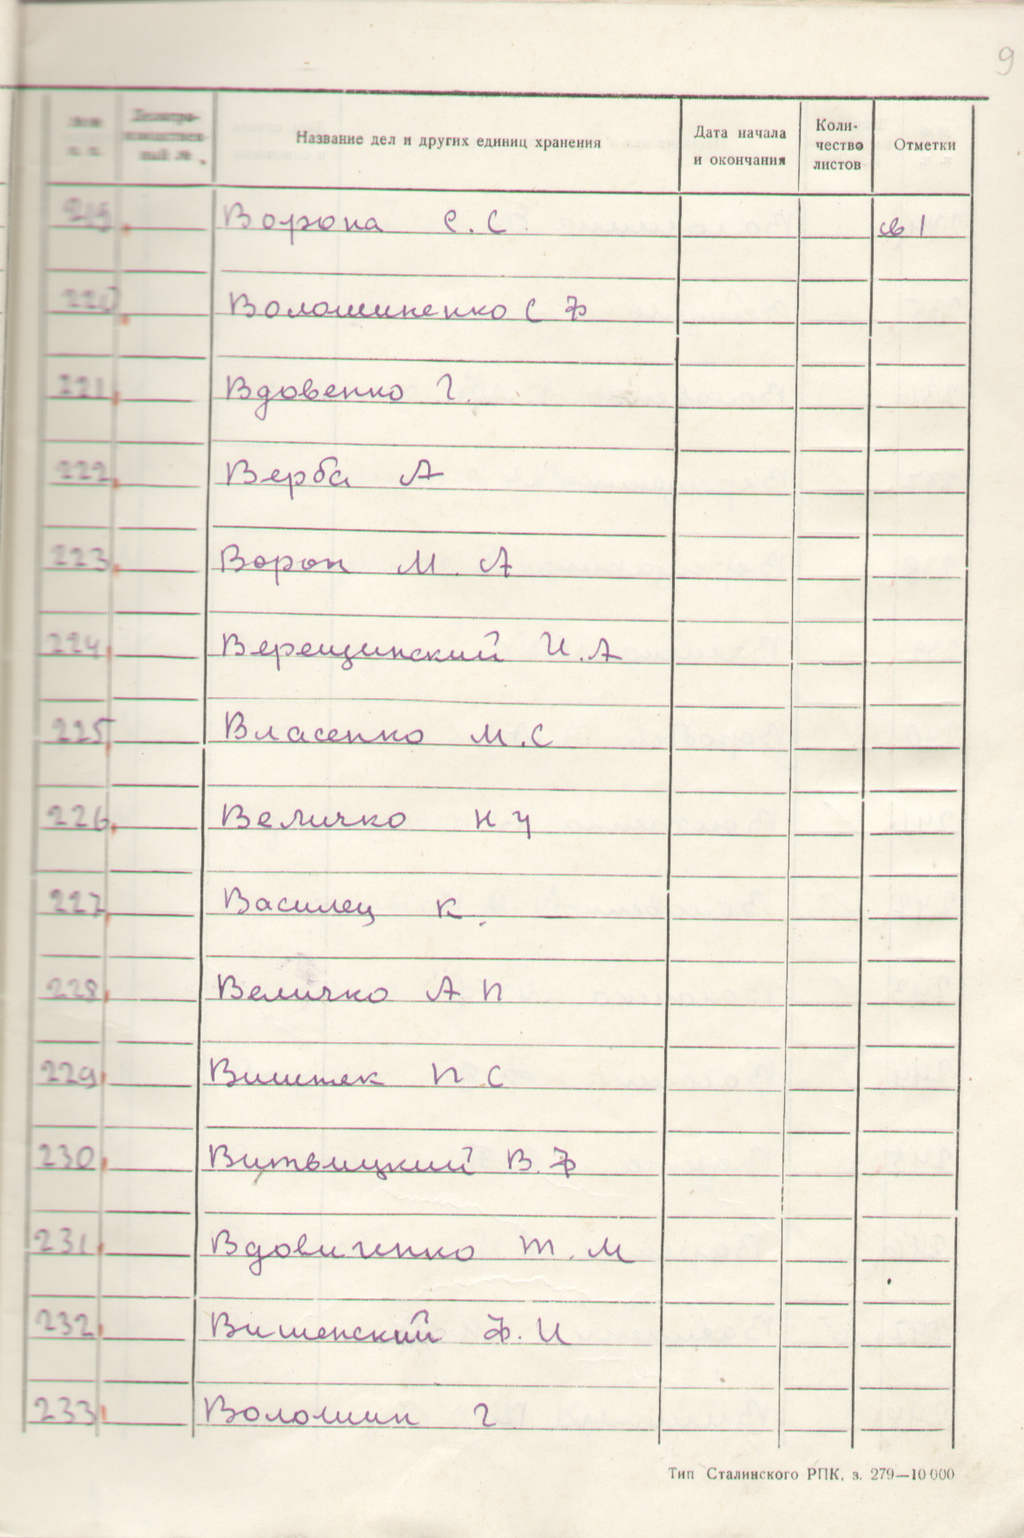 9
№№ п. п. Делопро- изводствен- ный № Название дел и других единиц хранения Дата начала и окончания Коли- чество листов Отметки
219 Ворона С. С св 1
220 Волошиненко С Ф
221 Вдовенко Г.
222 Верба А
223 Ворон М. А
224 Верещинский И. А
225 Власенко М. С
226 Величко Н Ч
227 Василец К.
228 Величко А П
229 Виштек П С
230 Витвицкий В. Ф
231 Вдовиченко Т. М
232 Вишенский Ф. И
233 Волошин Г
Тип Сталинского РПК, з. 279—10 000